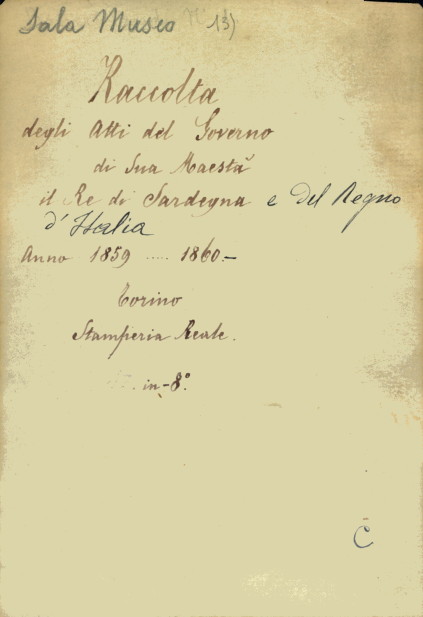 Sala Museo N° 13)
Raccolta
degli Atti del Governo
di Sua Maestà
il Re di Sardegna e Del Regno
d'Italia
Anno 1859 ..... 1860.—
Torino
Stamperia Reale.
in-8°.
C